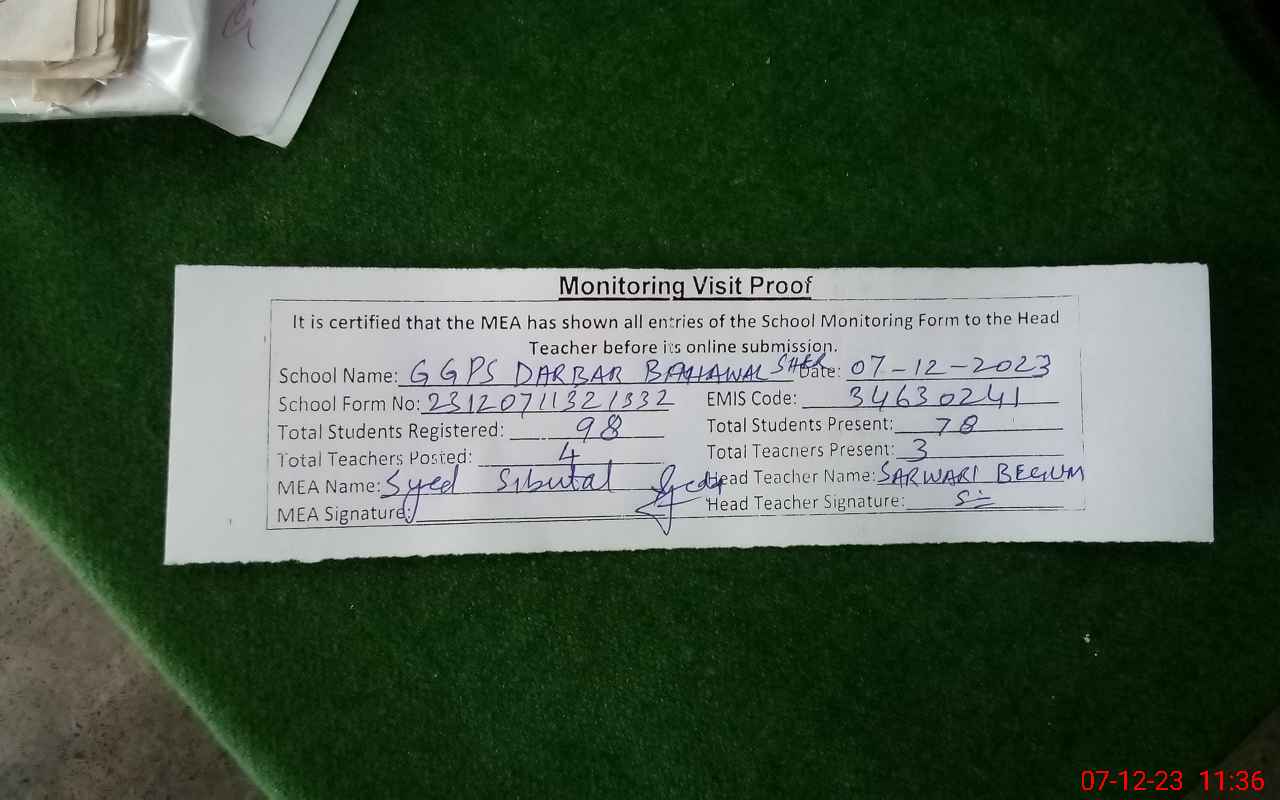 Monitoring Visit Proof
It is certified that the MEA has shown all entries of the School Monitoring Form to the Head
Teacher before its online submission.
School Name: GGPS DARBAR BAHAWAL SHER Date: 07-12-2023
School Form No: 23120711321332 EMIS Code: 34630241
Total Students Registered: 98 Total Students Present: 78
Total Teachers Posted: 4 Total Teachers Present: 3
MEA Name: Syed Sibutal Head Teacher Name: SARWARI BEGUM
MEA Signature: Head Teacher Signature:
07-12-23 11:36